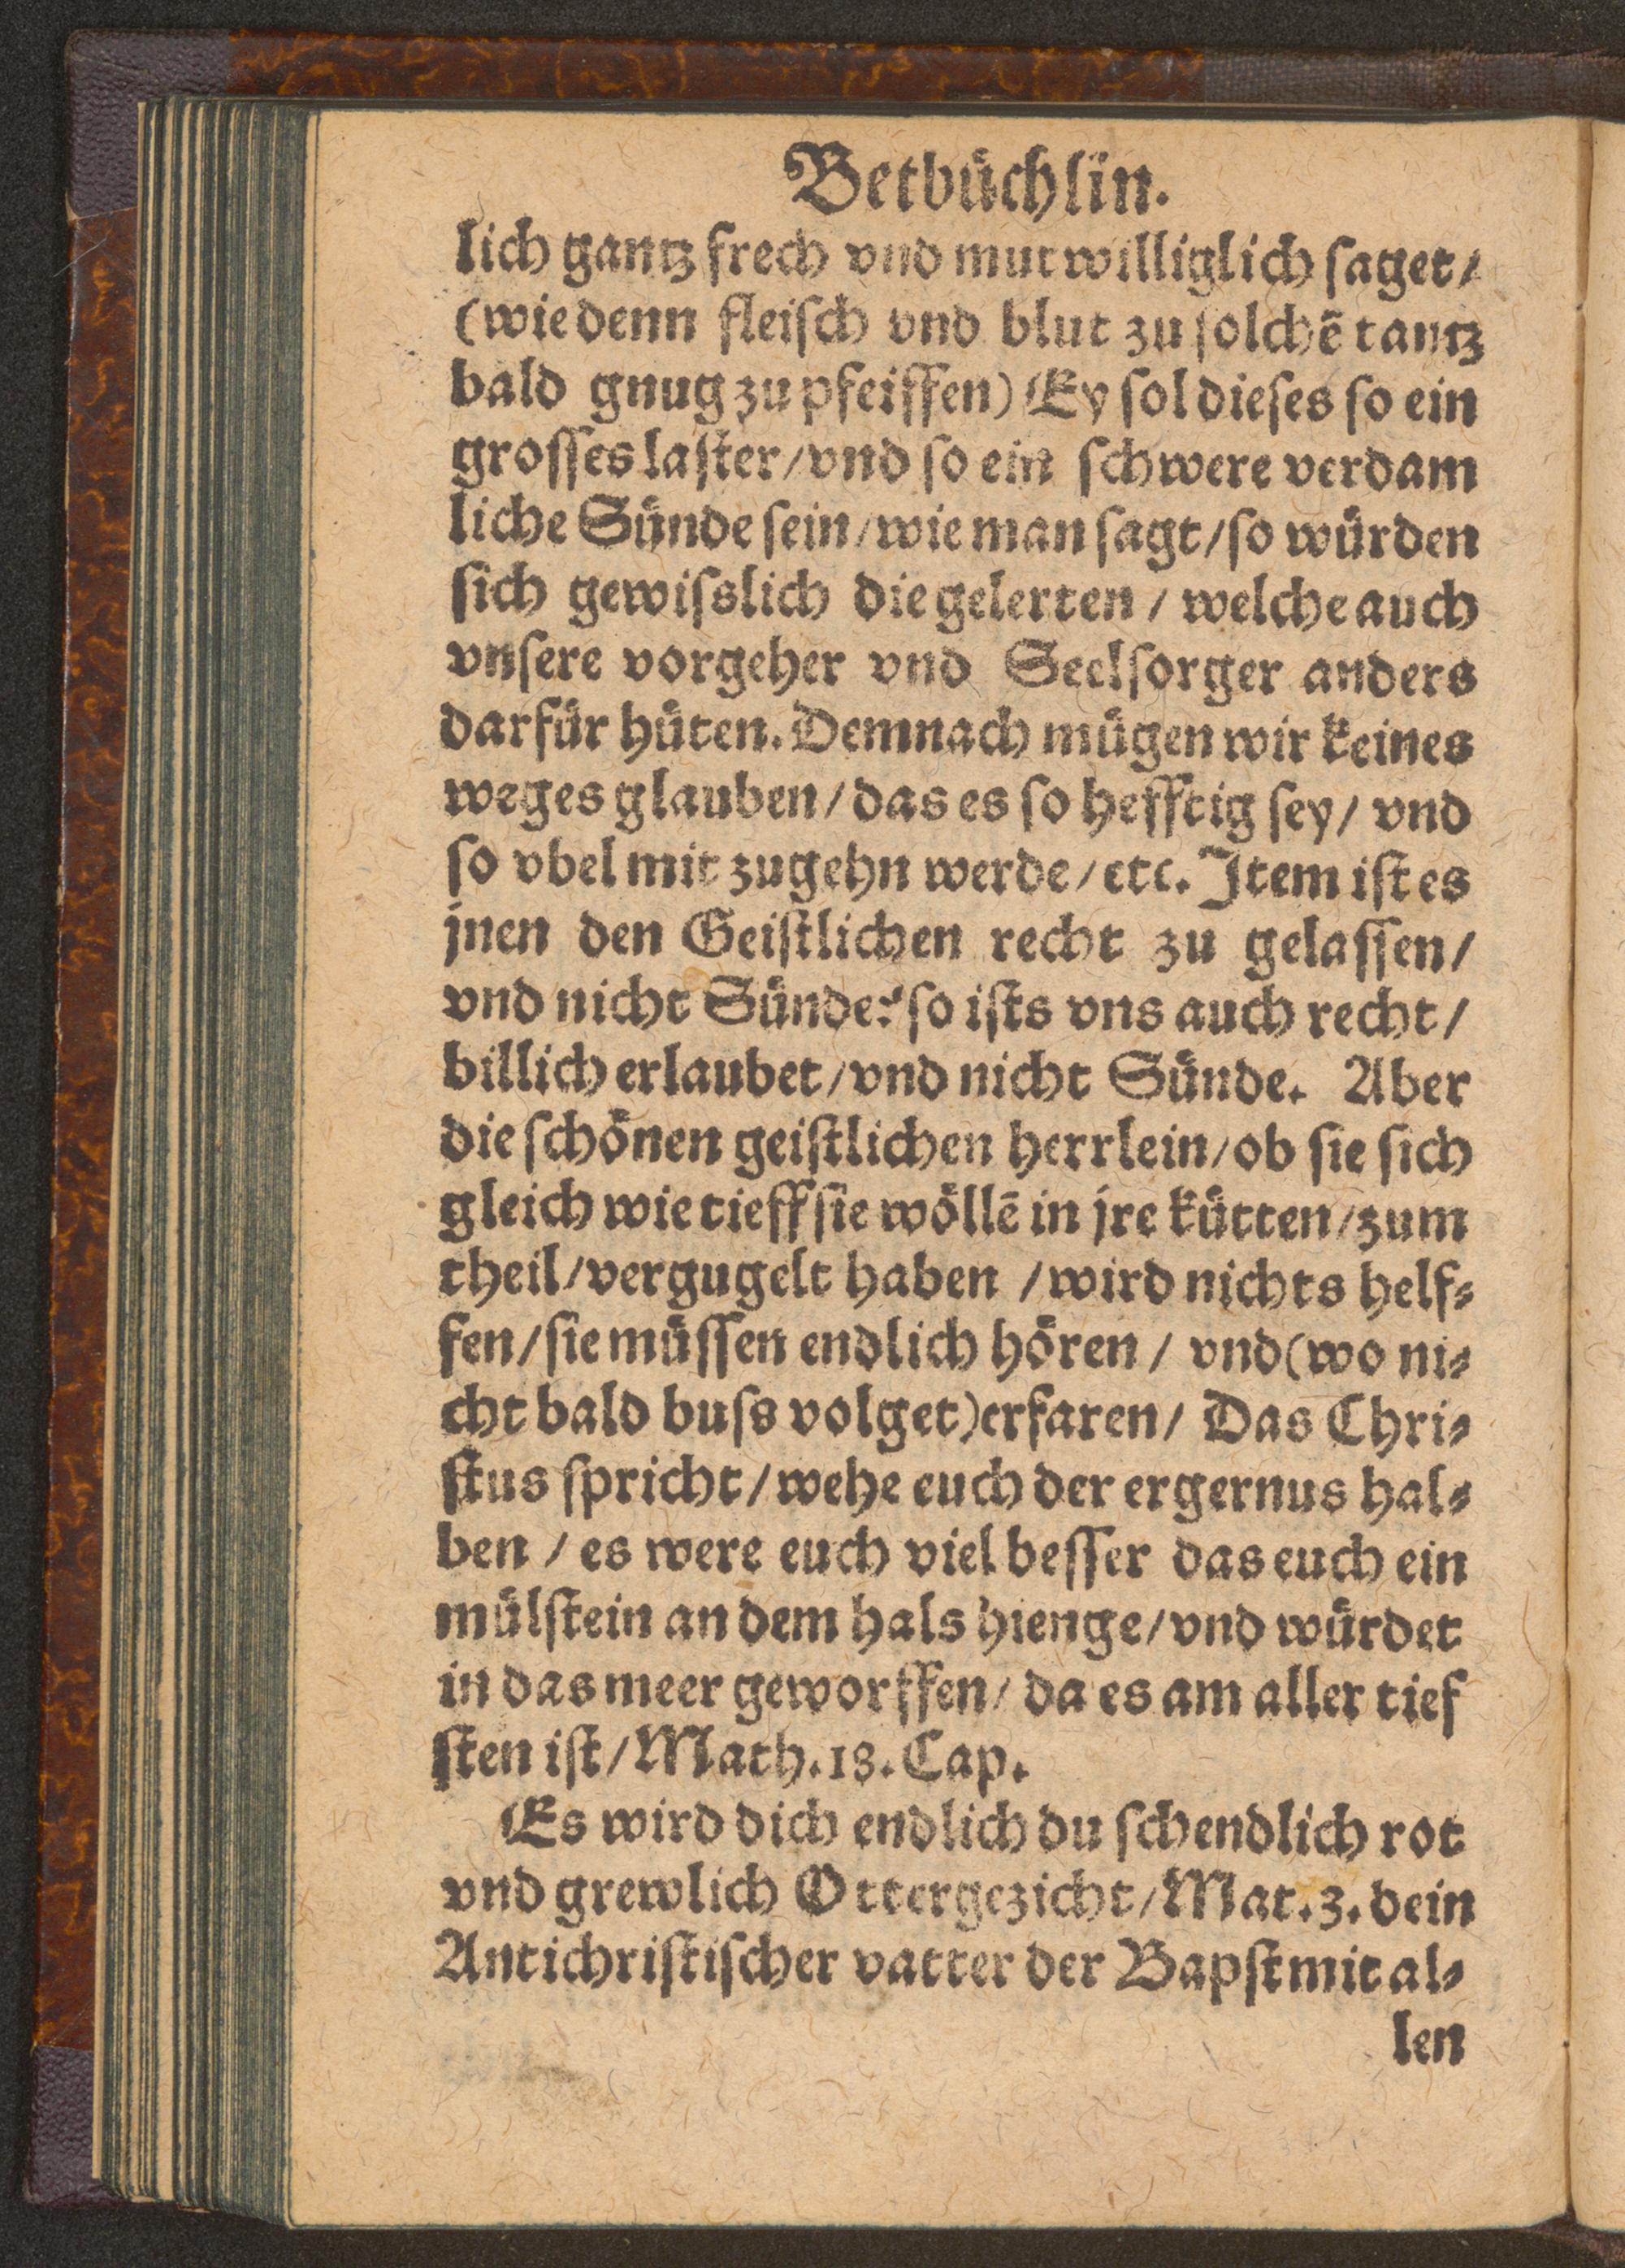 Betbüchlin.
lich gantz frech vnd mutwilliglich ſaget/
(wie denn fleiſch vnd blut zu ſolchē tantz
bald gnug zu pfeiffen) Ey ſol dieſes ſo ein
groſſes laſter/vnd ſo ein ſchwere verdam
liche Sünde ſein/wie man ſagt/ſo würden
ſich gewiſslich die gelerten / welche auch
vnſere vorgeher vnd Seelſorger anders
darfür hüten. Demnach mügen wir keines
weges glauben/das es ſo hefftig ſey/ vnd
ſo vbel mit zugehn werde/etc. Item iſt es
jnen den Geiſtlichen recht zu gelaſſen/
vnd nicht Sünde? ſo iſts vns auch recht/
billich erlaubet/vnd nicht Sünde. Aber
die ſchönen geiſtlichen herrlein/ob ſie ſich
gleich wie tieff ſie wöllē in jre kütten/zum
theil/vergugelt haben /wird nichts helf⸗
fen/ſie müſſen endlich hören / vnd(wo ni⸗
cht bald buſs volget)erfaren/ Das Chri⸗
ſtus ſpricht/wehe euch der ergernus hal⸗
ben / es were euch viel beſſer das euch ein
mülſtein an dem hals hienge/vnd würdet
in das meer geworffen/ da es am aller tief
ſten iſt/Math.18.Cap.
Es wird dich endlich du ſchendlich rot
vnd grewlich Ottergezicht/Mat.3.dein
Antichriſtiſcher vatter der Bapſt mit al⸗
len